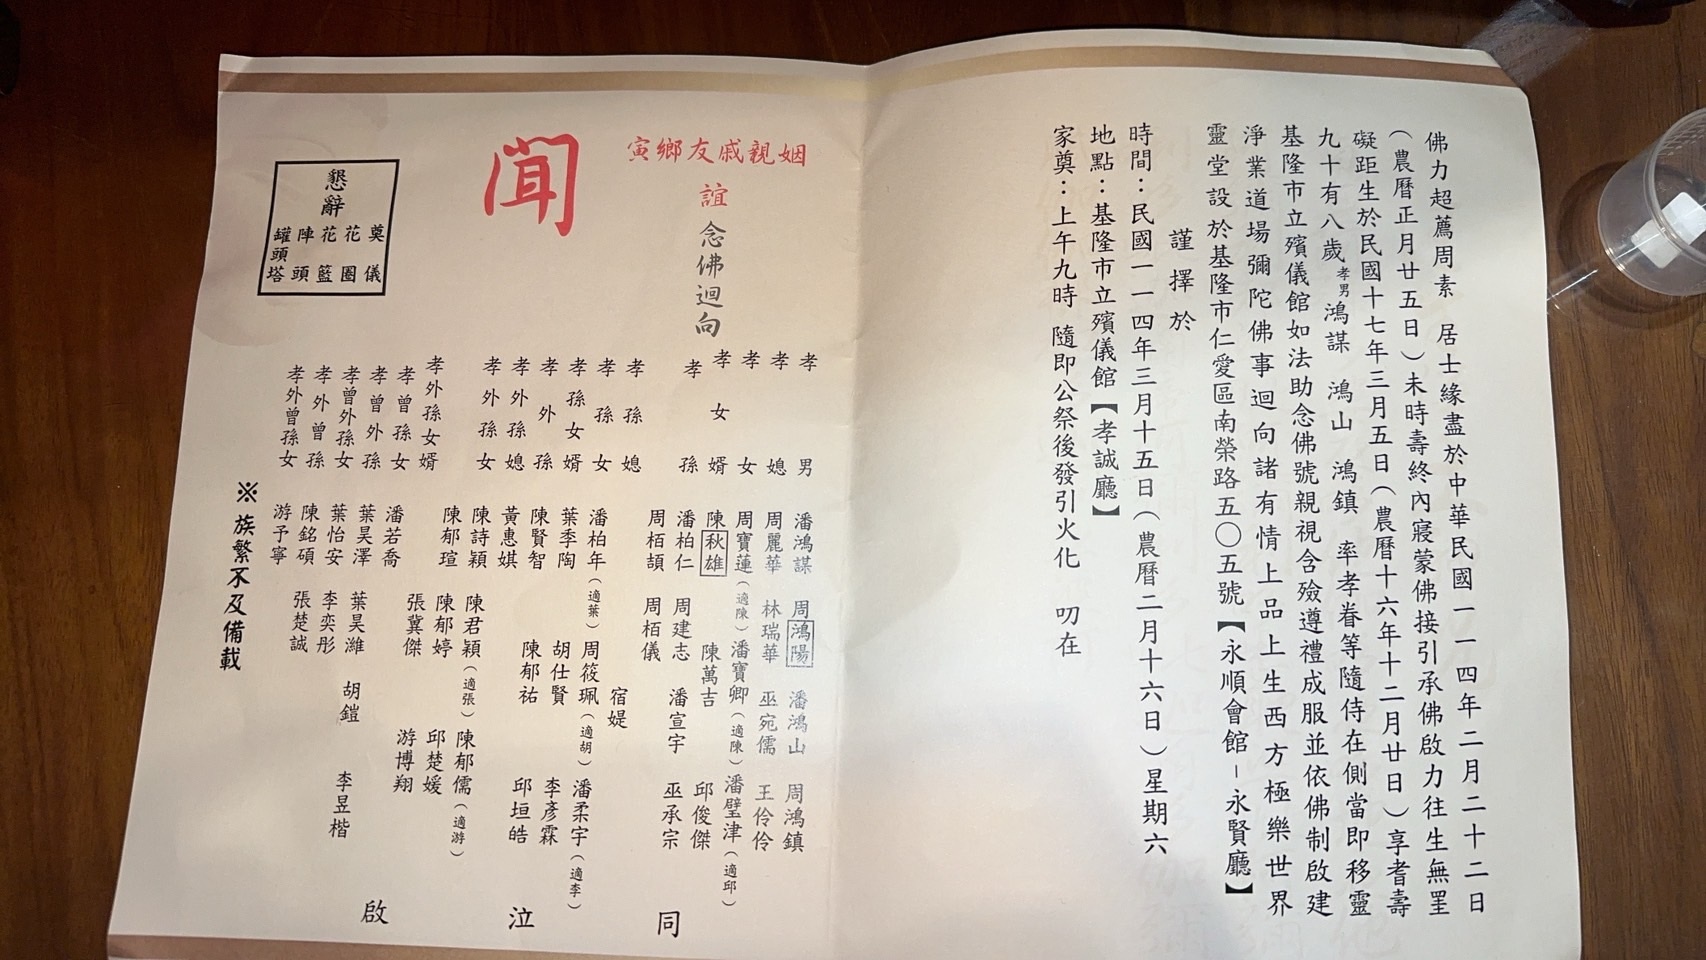 佛力超薦周素 居士緣盡於中華民國一一四年二月二十二日
（農曆正月廿五日）未時壽終內寢蒙佛接引承佛啟力往生無罣
礙距生於民國十七年三月五日（農曆十六年十二月廿日）享耆壽
九十有八歲孝男鴻謀 鴻山 鴻鎮 率孝眷等隨侍在側當即移靈
基隆市立殯儀館如法助念佛號親視含殮遵禮成服並依佛制啟建
淨業道場彌陀佛事迴向諸有情上品上生西方極樂世界
靈堂設於基隆市仁愛區南榮路五〇五號【永順會館－永賢廳】
謹擇於
時間：民國一一四年三月十五日（農曆二月十六日）星期六
地點：基隆市立殯儀館【孝誠廳】
家奠：上午九時 隨即公祭後發引火化 叨在
姻親戚友鄉寅
誼 念佛迴向
聞
懇辭
奠儀
花圈
花籃
陣頭
罐頭塔
孝男 潘鴻謀 周鴻陽 潘鴻山 周鴻鎮
孝媳 周麗華 林瑞華 巫宛儒 王伶伶
孝女 周寶蓮（適陳）潘寶卿（適陳）潘璧津（適邱）
孝女婿 陳秋雄 陳萬吉 邱俊傑
孝孫 潘柏仁 周建志 潘宣宇 巫承宗
周栢頡 周栢儀
孝孫媳 宿媞
孝孫女 潘柏年（適葉）周筱珮（適胡）潘柔宇（適李）
孝孫女婿 葉季陶 胡仕賢 李彥霖
孝外孫 陳賢智 陳郁祐 邱垣皓
孝外孫媳 黃惠娸
孝外孫女 陳詩穎 陳君穎（適張）陳郁儒（適游）
陳郁瑄 陳郁婷 邱楚媛
孝外孫女婿 張冀傑 游博翔
孝曾孫女 潘若喬
孝曾外孫 葉昊澤 葉昊濰 胡鎧 李昱楷
孝曾外孫女 葉怡安 李奕彤
孝外曾孫 陳銘碩 張楚誠
孝外曾孫女 游予寧
※族繁不及備載
同泣啟